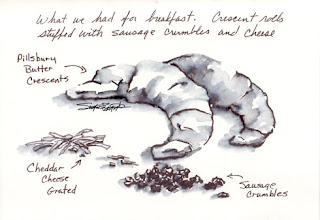 What we had for breakfast. Crescent rolls
stuffed with sausage crumbles and cheese
Pillsbury
Butter
Crescents
Cheddar
Cheese
Grated
Sausage
Crumbles